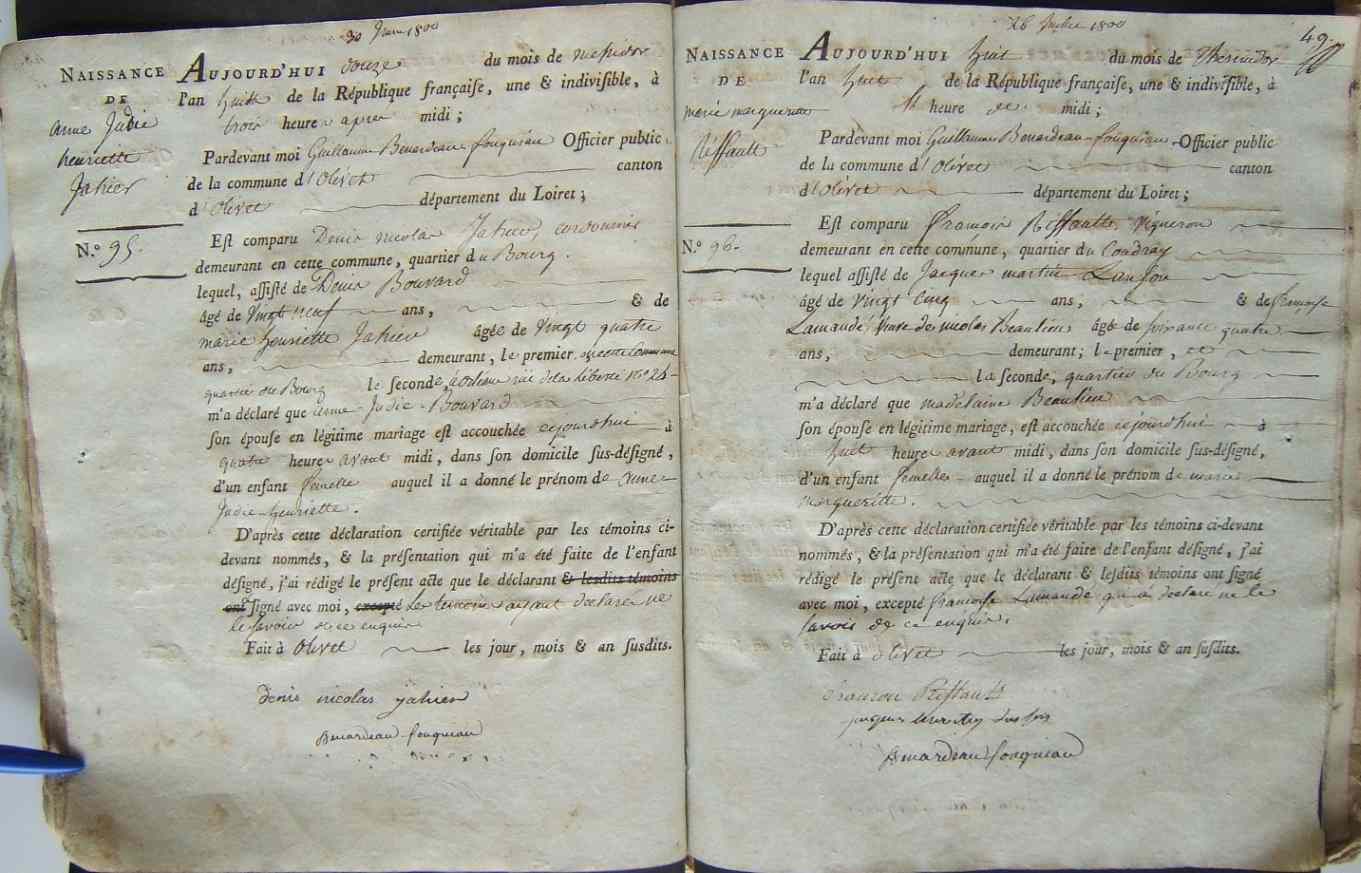 30 Juin 1800
NAISSANCE
DE
anne Judie
henriette
Jahier
N.º 95.
AUJOURD'HUI onze du mois de Messidor
l'an huit de la République françaiſe, une & indiviſible, à
trois heures apres midi ;
Pardevant moi Guillaume Benardeau-fouqueau Officier public
de la commune d'Olivet canton
d'Olivet département du Loiret ;
Eſt comparu Denis nicolas Jahier, cordonnier
demeurant en cette commune, quartier du Bourg.
lequel, aſſiſté de Denis Bouvard
âgé de vingt neuf ans, & de
marie henriette Jahier âgée de vingt quatre
ans, demeurant, le premier en cette Commune
quartier du Bourg le ſeconde, à orleans rüe de la liberté nº 24
m'a déclaré que anne Judie Bouvard
ſon épouſe en légitime mariage eſt accouchée cejourdhui à
quatre heures avant midi, dans ſon domicile ſus-déſigné,
d'un enfant femelle auquel il a donné le prénom de anne
Judie henriette.
D'après cette déclaration certifiée véritable par les témoins ci-
devant nommés, & la préſentation qui m'a été faite de l'enfant
déſigné, j'ai rédigé le préſent acte que le déclarant & leſdits témoins
ont ſigné avec moi, excepté les temoins ayant declaré ne
le savoir de ce enquis
Fait à Olivet les jour, mois & an ſusdits.
denis nicolas jahier
Benardeau-fouqueau
26 Juillet 1800
49.
NAISSANCE
DE
marie marguerite
Reffault
N.º 96.
AUJOURD'HUI huit du mois de Thermidor
l'an huit de la République françaiſe, une & indiviſible, à
heure de midi ;
Pardevant moi Guillaume Benardeau-fouqueau Officier public
de la commune d'Olivet canton
d'Olivet département du Loiret ;
Eſt comparu françois Reffault, vigneron
demeurant en cette commune, quartier du Coudray
lequel aſſiſté de Jacques martin Lanson
âgé de vingt cinq ans, & de françoise
Lamande veuve de nicolas Beaulieu âgé de soixante quatre
ans, demeurant ; le premier, 
la ſeconde, quartier du Bourg
m'a déclaré que madelaine Beaulieu
ſon épouſe en légitime mariage, eſt accouchée cejourdhui à
huit heures avant midi, dans ſon domicile ſus-déſigné,
d'un enfant femelle auquel il a donné le prénom de marie
marguerite.
D'après cette déclaration certifiée véritable par les témoins ci-devant
nommés, & la préſentation qui m'a été faite de l'enfant déſigné, j'ai
rédigé le préſent acte que le déclarant & leſdits témoins ont ſigné
avec moi, excepté françoise Lamande qui a declaré ne le
savoir de ce enquis.
Fait à olivet les jour, mois & an ſuſdits.
francois Reffault
Benardeau fouqueau